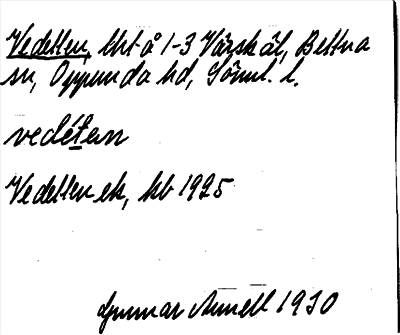 Vedetten, lht å 1-3 Vårskäl, Bettna
sn, Oppunda hd, Söml. l.
vedétan
Vedetten ek, kb 1925
Gunnar Annell 1930